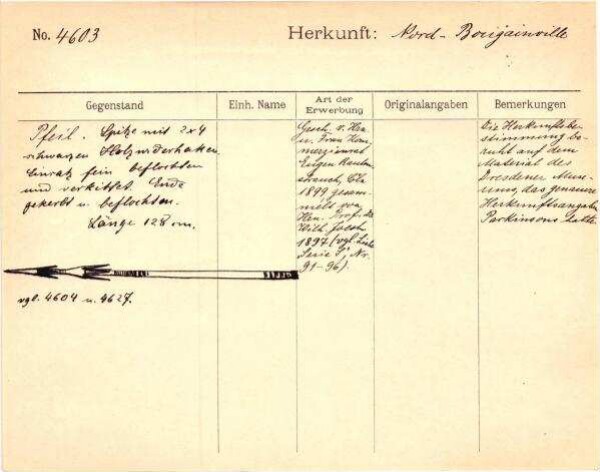 No. 4603
Herkunft: Nord-Bougainville
Gegenstand
Einh. Name
Art der Erwerbung
Originalangaben
Bemerkungen
Pfeil. Spitze mit 2x4
schwarzen Holzwiderhaken.
Einsatz fein beflochten
und verkittet. Ende
gekerbt u. beflochten.
Länge 128 cm.
vgl. 4604 u. 4627.
Gesch. v. Hrn.
u. Frau Kom-
merzienrat
Eugen Rauten-
strauch, Cln
1899 gesam-
melt von
Hrn. Prof. Dr.
Wilh. Joest
1897 (vgl. Liste
Serie I, Nr.
91-96).
Die Herkunftsbe-
stimmung be-
ruht auf dem
Material des
Dresdener Muse-
ums, das genauere
Herkunftsangaben
Parkinsons